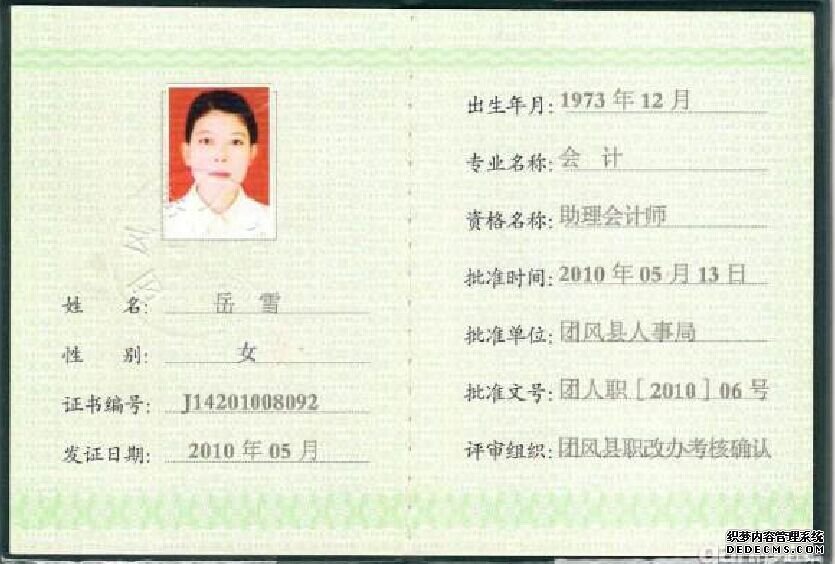 姓 名： 岳 雪
性 别： 女
证书编号： J14201008092
发证日期： 2010 年 05 月
出生年月： 1973 年 12 月
专业名称： 会 计
资格名称： 助理会计师
批准时间： 2010 年 05 月 13 日
批准单位： 团风县人事局
批准文号： 团人职［2010］06 号
评审组织： 团风县职改办考核确认
织梦内容管理系统
DEDECMS.COM